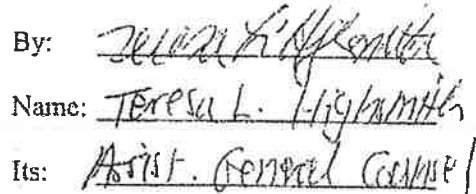 By: Teresa L. Highsmith
Name: Teresa L. Highsmith
Its: Assist. General Counsel